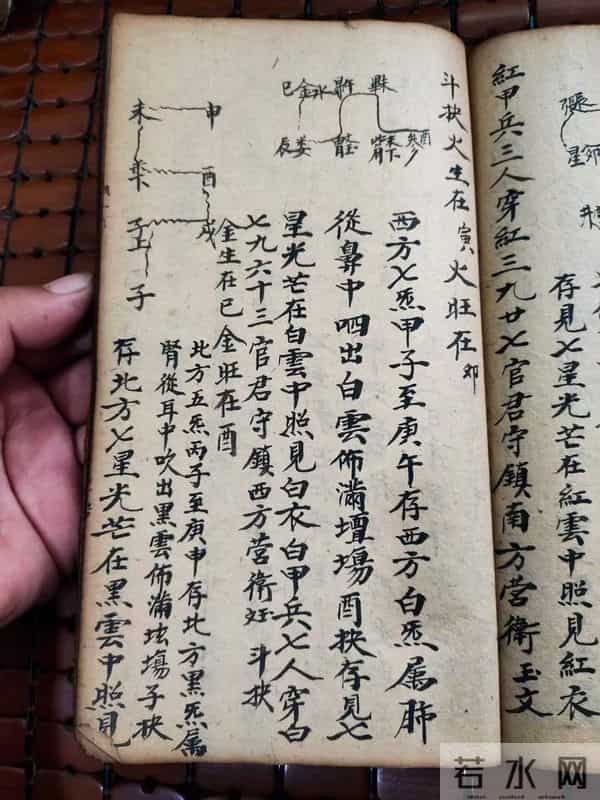 存見七星光芒在紅雲中照見紅衣
紅甲兵三人穿紅三九廿七官君守鎮南方營衛玉文
斗抉火生在寅火旺在卯
西方七炁甲子至庚午存西方白炁属肺
從鼻中呬出白雲佈滿壇場酉抉存見七
星光芒在白雲中照見白衣白甲兵七人穿白
七九六十三官君守鎮西方營衛 斗抉
金生在巳金旺在酉
北方五炁丙子至庚申存北方黑炁属
腎從耳中吹出黑雲佈滿壇場子抉
存北方七星光芒在黑雲中照見
巳金水
辰婁
未 申
酉
子上 戌
子
若水网